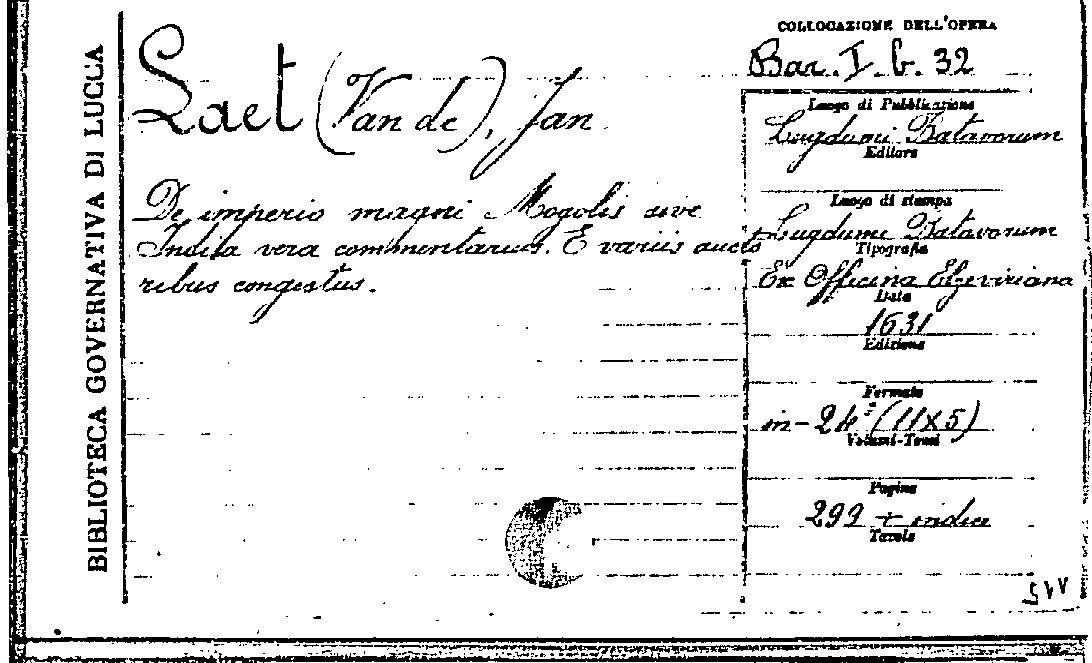 BIBLIOTECA GOVERNATIVA DI LUCCA
Laet (Van de), Jan
De imperio magni Mogolis sive
India vera commentarius. E variis aucto
ribus congestus.
COLLOCAZIONE DELL'OPERA
Bar. I. b. 32
Luogo di Pubblicazione
Lugduni Batavorum
Editore
Luogo di stampa
Lugduni Batavorum
Tipografia
Ex Officina Elzeviriana
Data
1631
Edizione
Formato
in-24° (11x5)
Volumi-Tomi
Pagine
299 + indice
Tavole